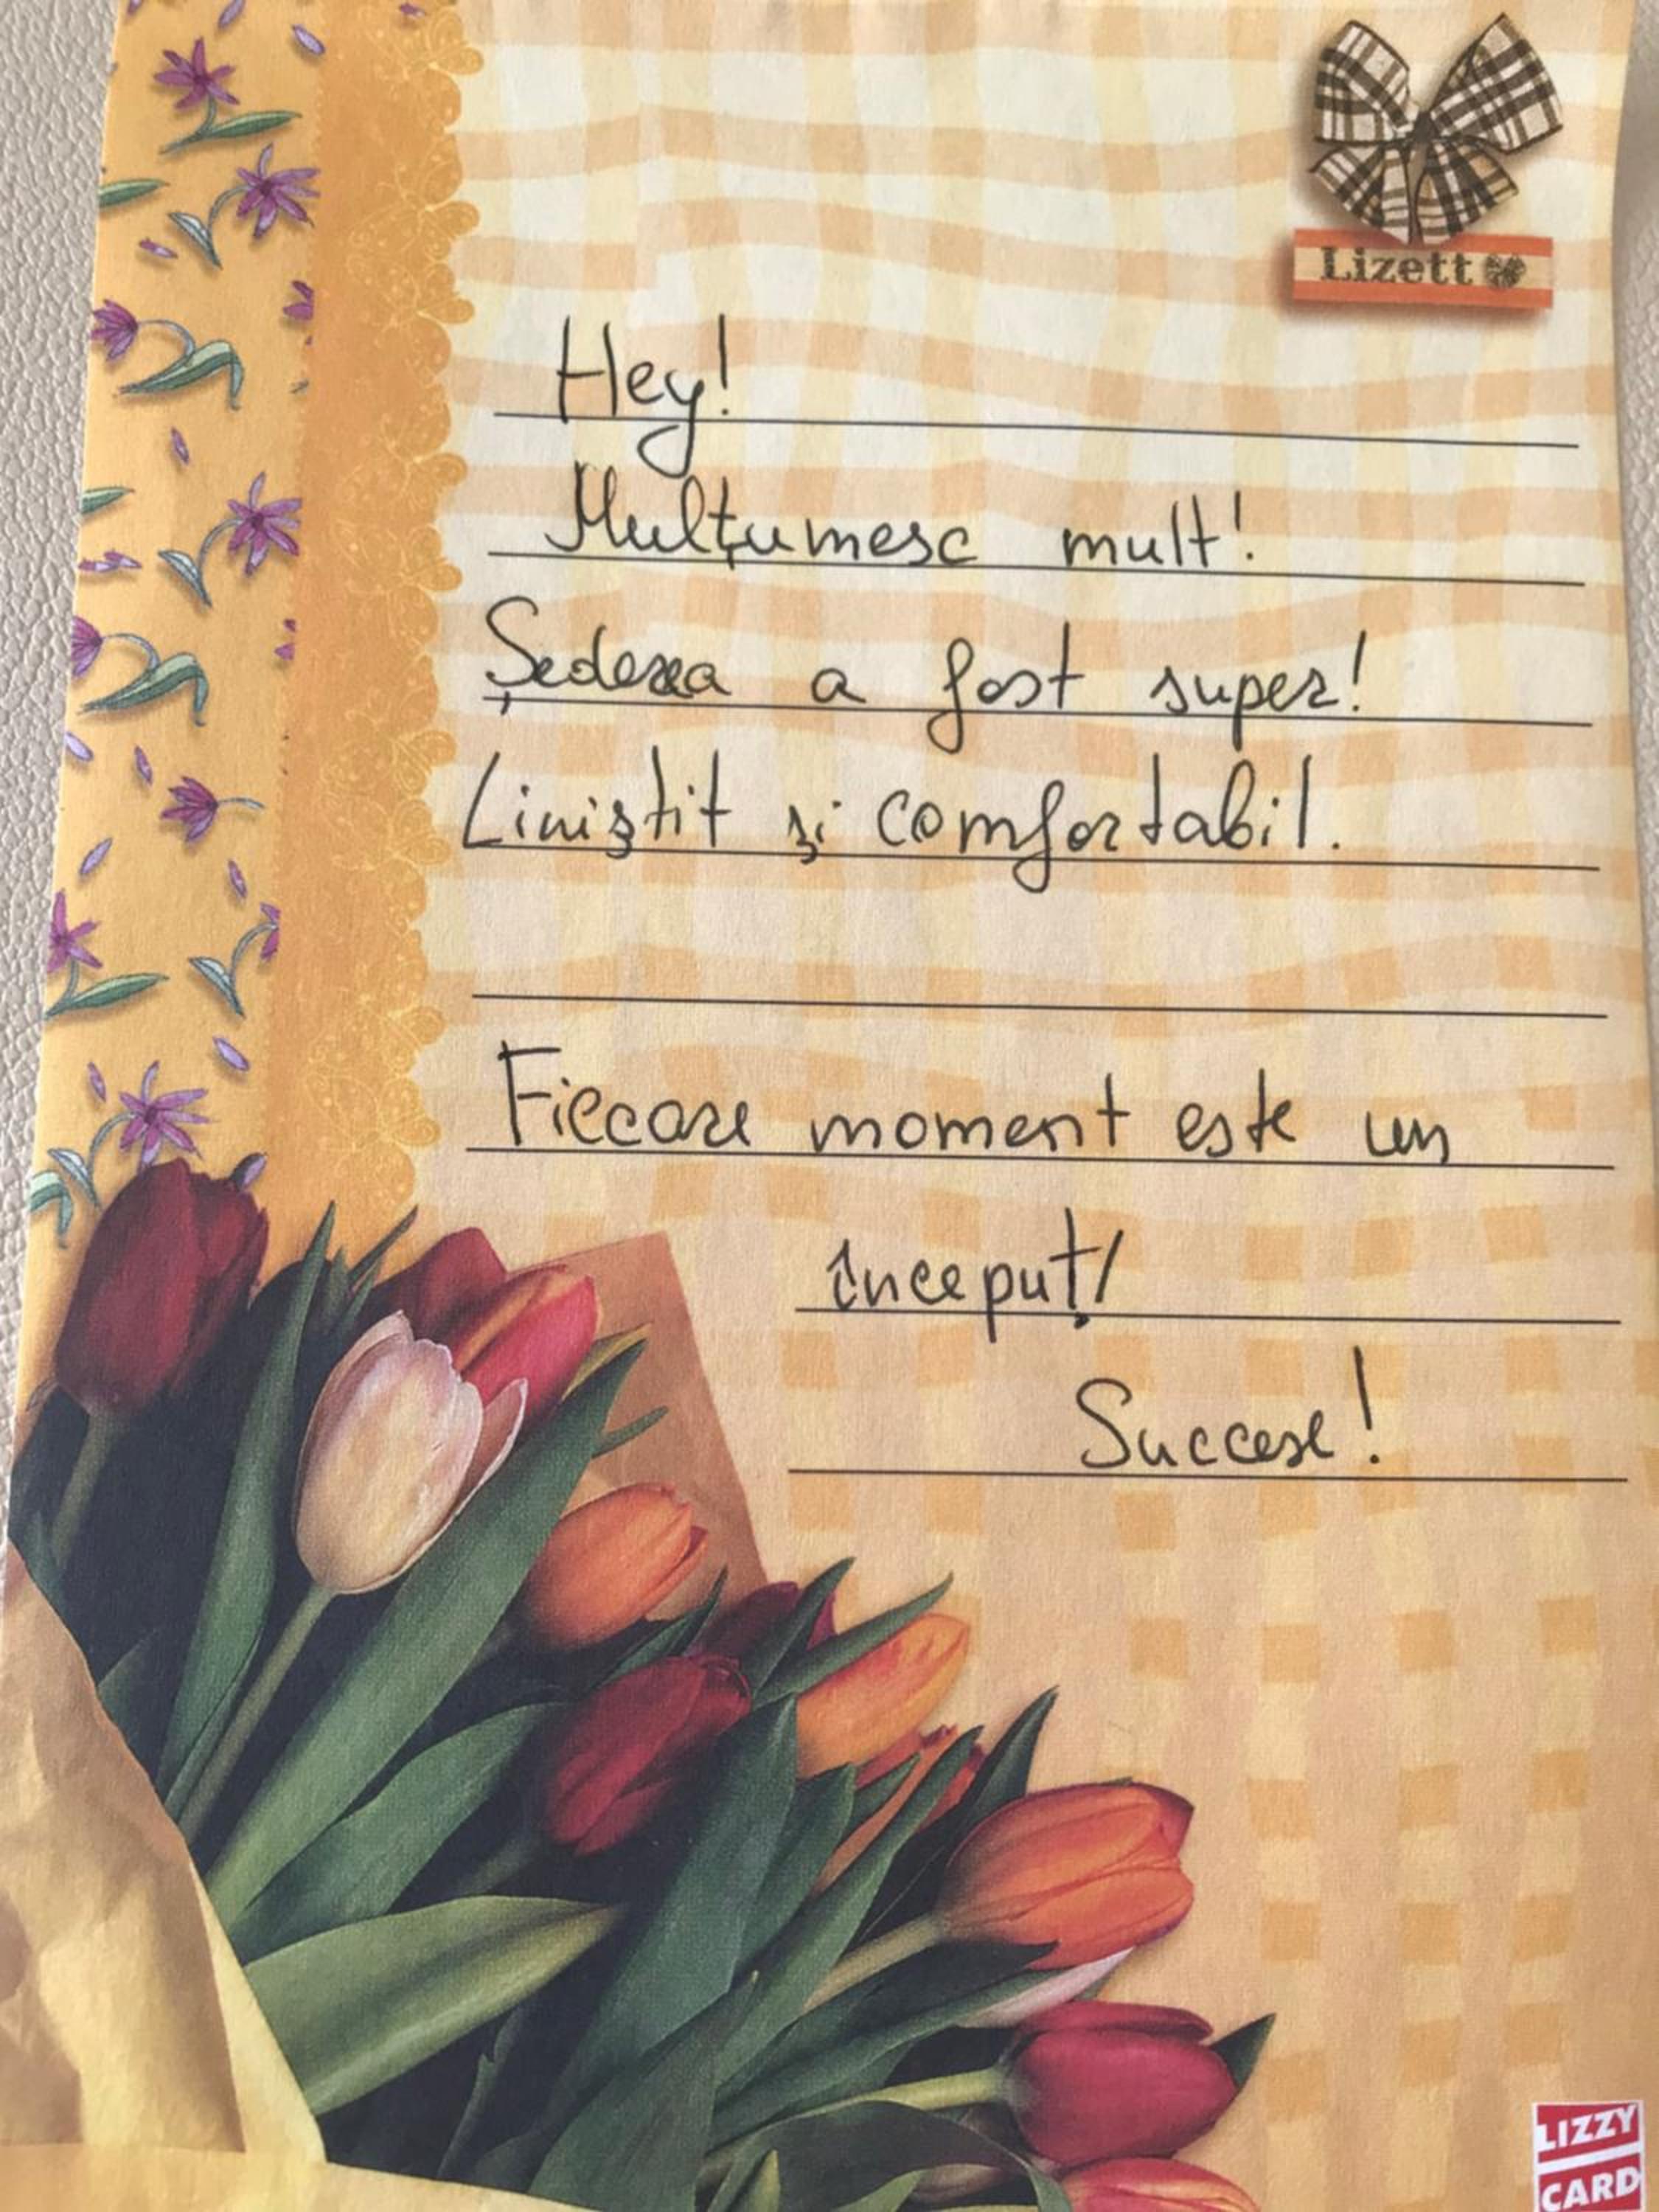 Lizett
Hey!
Mulțumesc mult!
Șederea a fost super!
Liniștit și comfortabil.
Fiecare moment este un
început!
Succese!
LIZZY
CARD